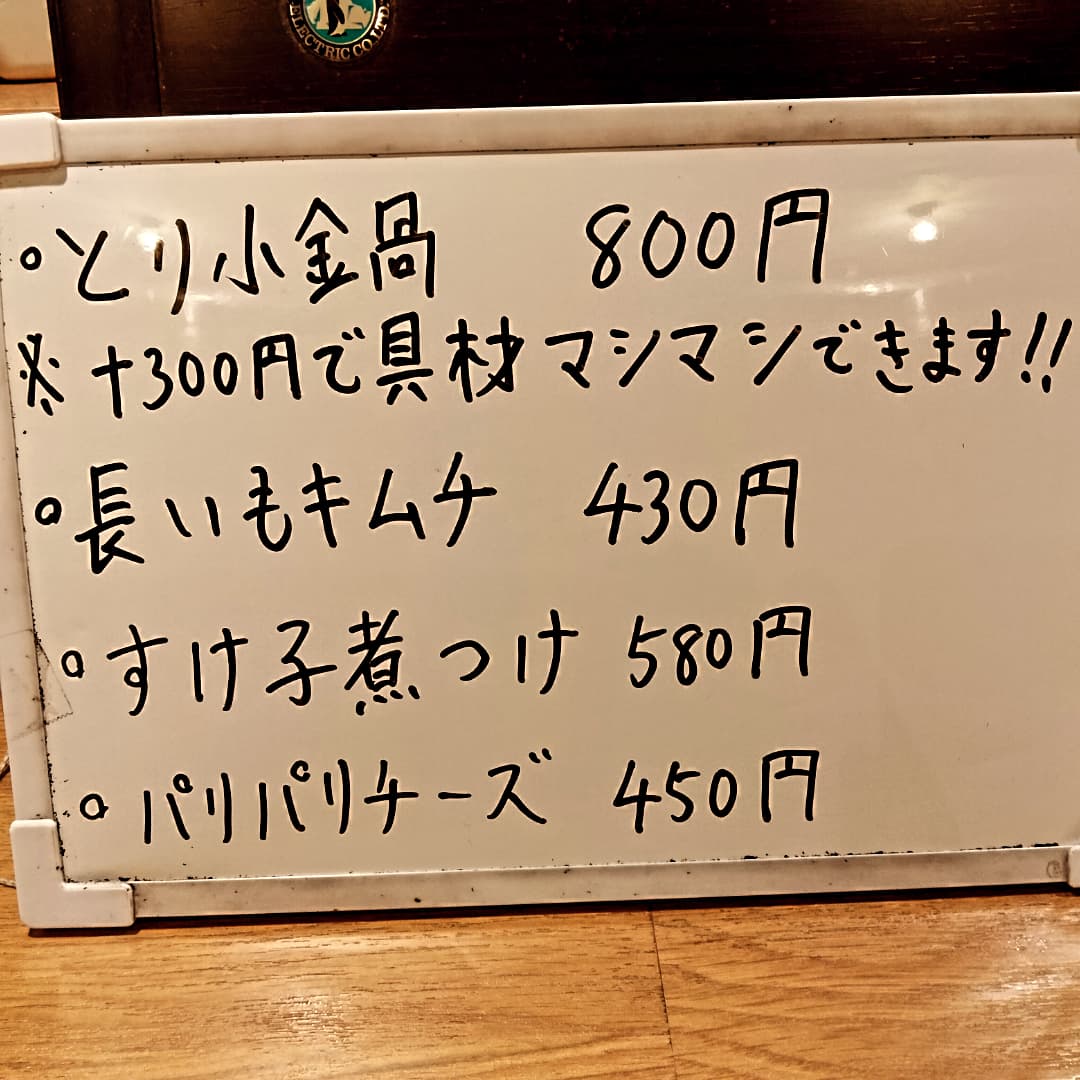 ELECTRIC CO.LTD.
。とり小鍋 800円
※+300円で具材マシマシできます!!
。長いもキムチ 430円
。すけ子煮つけ 580円
。パリパリチーズ 450円